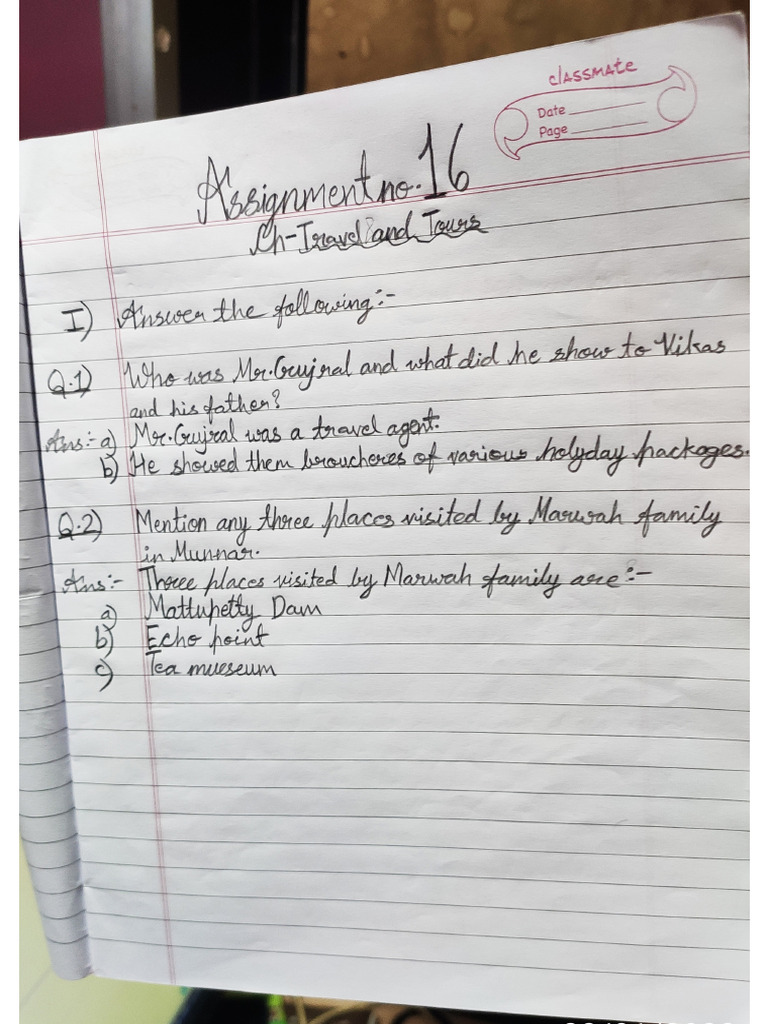 classmate
Date
Page
Assignment no. 16
Ch-Travel and Tours
I) Answer the following:-
Q.1) Who was Mr. Gujral and what did he show to Vikas
and his father?
Ans:- a) Mr. Gujral was a travel agent.
b) He showed them broucheres of various holyday packages.
Q.2) Mention any three places visited by Marwah family
in Munnar.
Ans:- Three places visited by Marwah family are:-
a) Mattupetty Dam
b) Echo point
c) Tea mueseum